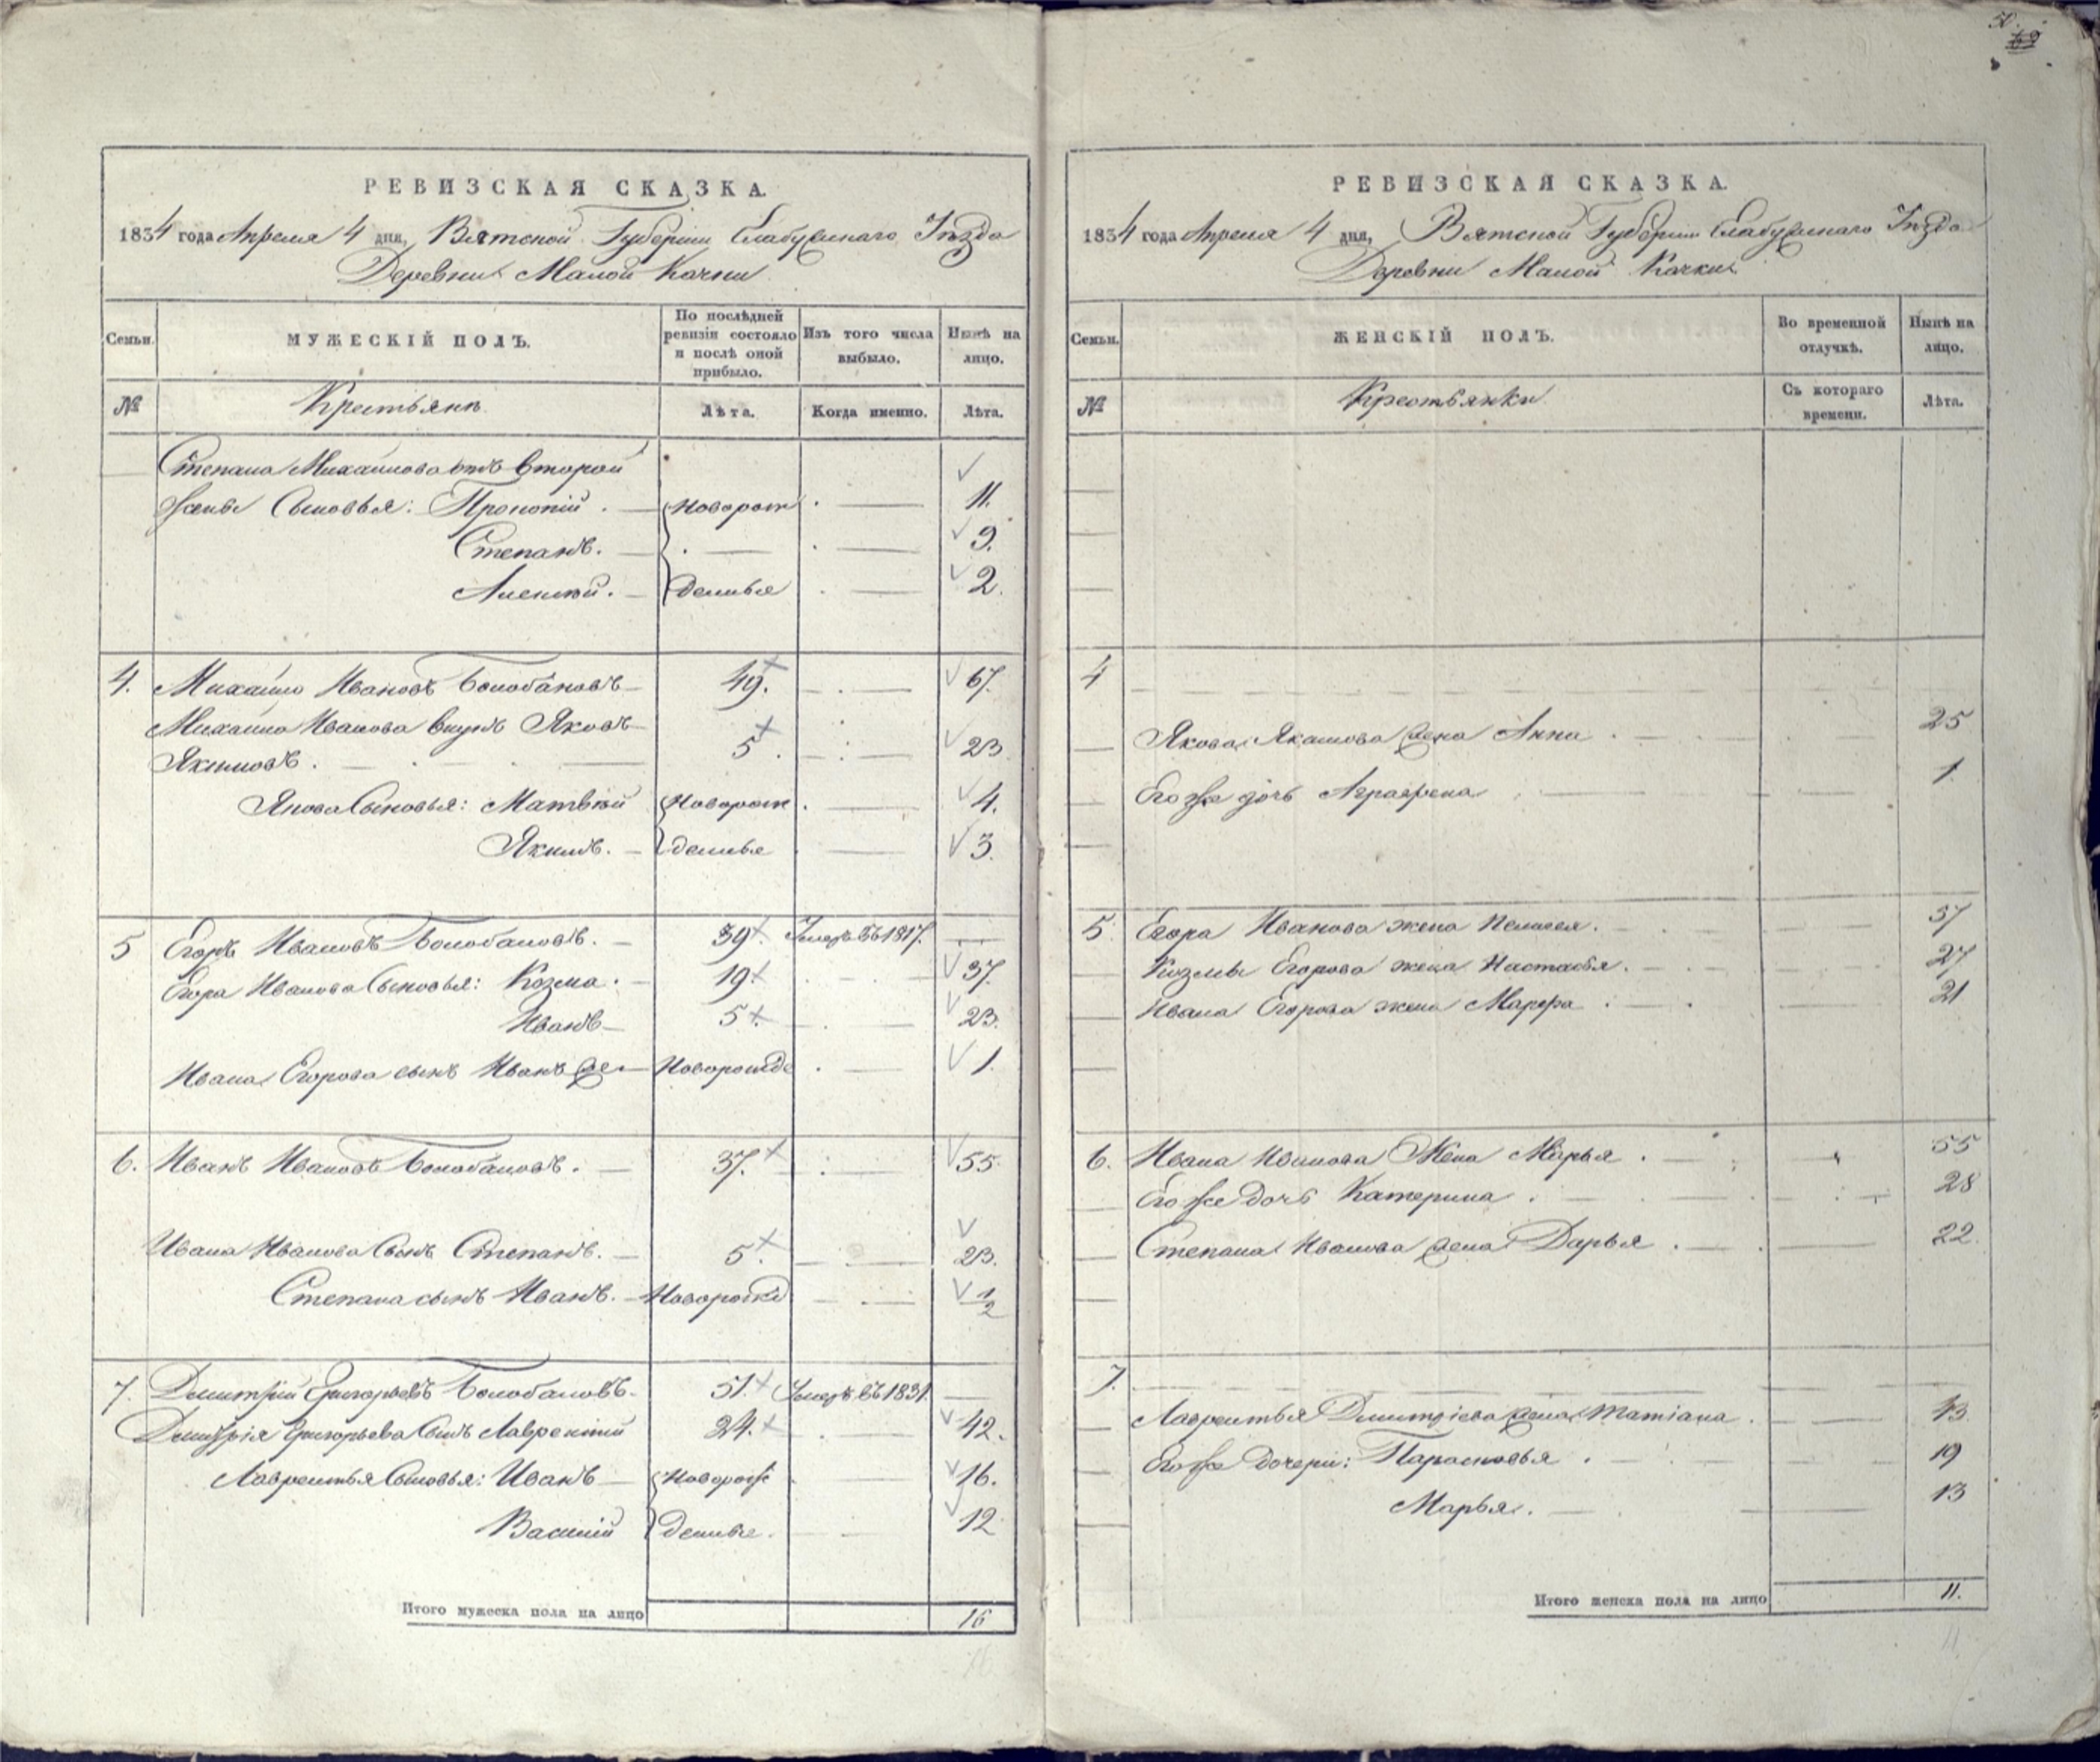 РЕВИЗСКАЯ СКАЗКА.
1834 года Апреля 4 дня, Вятской Губерніи Елабужскаго Уѣзда
Деревни Малой Качки
Семьи. МУЖЕСКІЙ ПОЛЪ. По послѣдней ревизіи состояло и послѣ оной прибыло. Изъ того числа выбыло. Нынѣ на лицо.
№ Крестьянъ Лѣта. Когда именно. Лѣта.
Степана Михайлова отъ второй
жены Сыновья: Прокопій. новорож 11.
Степанъ. 9.
Алексѣй. денные 2.
4. Михайло Ивановъ Болобановъ 49. 67.
Михайла Иванова внукъ Яковъ
Якимовъ. 5. 23
Якова Сыновья: Матвѣй новорож 4.
Якимъ. денные 3.
5 Егоръ Ивановъ Болобановъ. 39. Умеръ въ 1817.
Егора Иванова Сыновья: Козма. 19. 37.
Иванъ 5. 23.
Ивана Егорова сынъ Иванъ же Новорожде 1.
6. Иванъ Ивановъ Болобановъ. 37. 55.
Ивана Иванова Сынъ Степанъ. 5. 23.
Степана сынъ Иванъ. Новорожд 1/2
7. Дмитрій Григорьевъ Болобановъ. 51. Умеръ въ 1831.
Дмитрія Григорьева Сынъ Лаврентій 24. 42.
Лаврентья Сыновья: Иванъ новорож 16.
Василій денные. 12
Итого мужеска пола на лицо 16
50.
РЕВИЗСКАЯ СКАЗКА.
1834 года Апреля 4 дня, Вятской Губерніи Елабужскаго Уѣзда
Деревни Малой Качки
Семьи. ЖЕНСКІЙ ПОЛЪ. Во временной отлучкѣ. Нынѣ на лицо.
№ Крестьянки Съ котораго времени. Лѣта.
4
Якова Якимова жена Анна 25
Его же дочь Аграфена 1
5. Егора Иванова жена Пелагея. 57
Козмы Егорова жена Настасья. 27
Ивана Егорова жена Марфа 21
6. Ивана Иванова Жена Марья. 55
Его же дочь Катерина. 28
Степана Иванова жена Дарья. 22.
7.
Лаврентья Дмитріева жена Татіана. 43
Его же дочери: Парасковья. 19
Марья. 13
Итого женска пола на лицо 11.